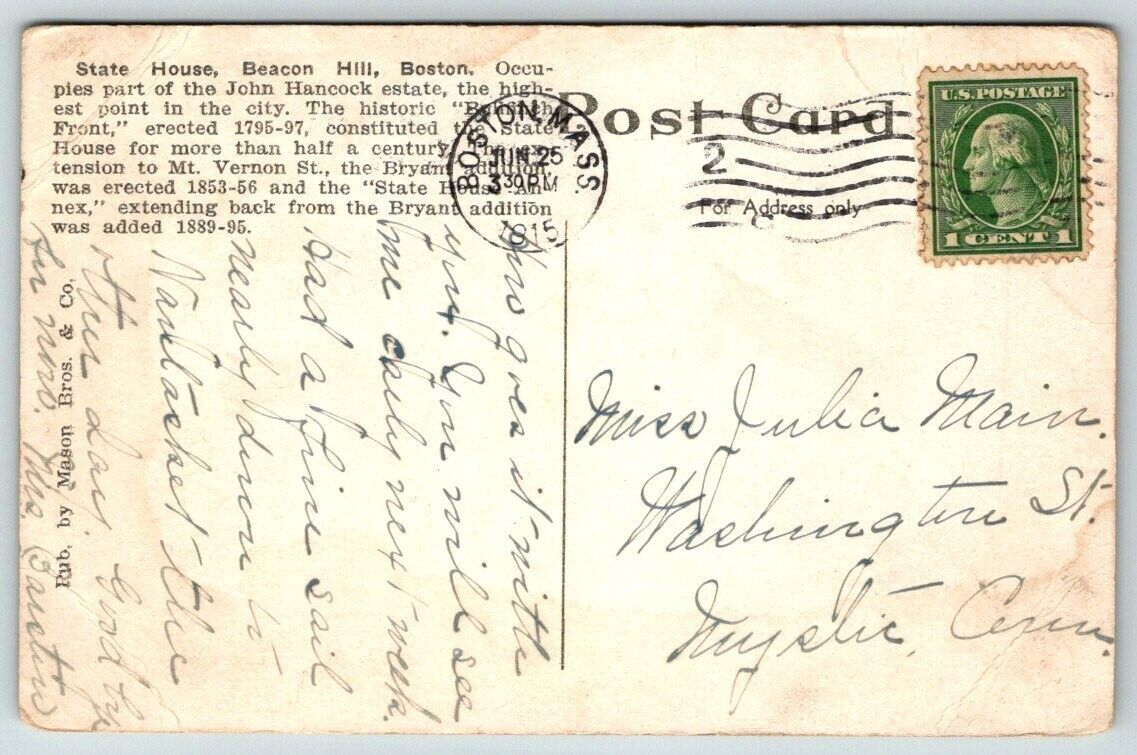 State House, Beacon Hill, Boston. Occu-
pies part of the John Hancock estate, the high-
est point in the city. The historic "Bulfinch
Front," erected 1795-97, constituted the State
House for more than half a century. The ex-
tension to Mt. Vernon St., the Bryant addition
was erected 1853-56 and the "State House An-
nex," extending back from the Bryant addition
was added 1889-95.
Post Card
For Address only
BOSTON, MASS.
JUN 25
3 30 PM
1915
2
U.S. POSTAGE
1 CENT 1
Pub. by Mason Bros. & Co.
How goes it with
you. You will see
me early next week.
Had a fine sail
nearly down to
Nantasket the
other day. Good by
for now.
Miss Julia Main.
Washington St.
Mystic Conn.